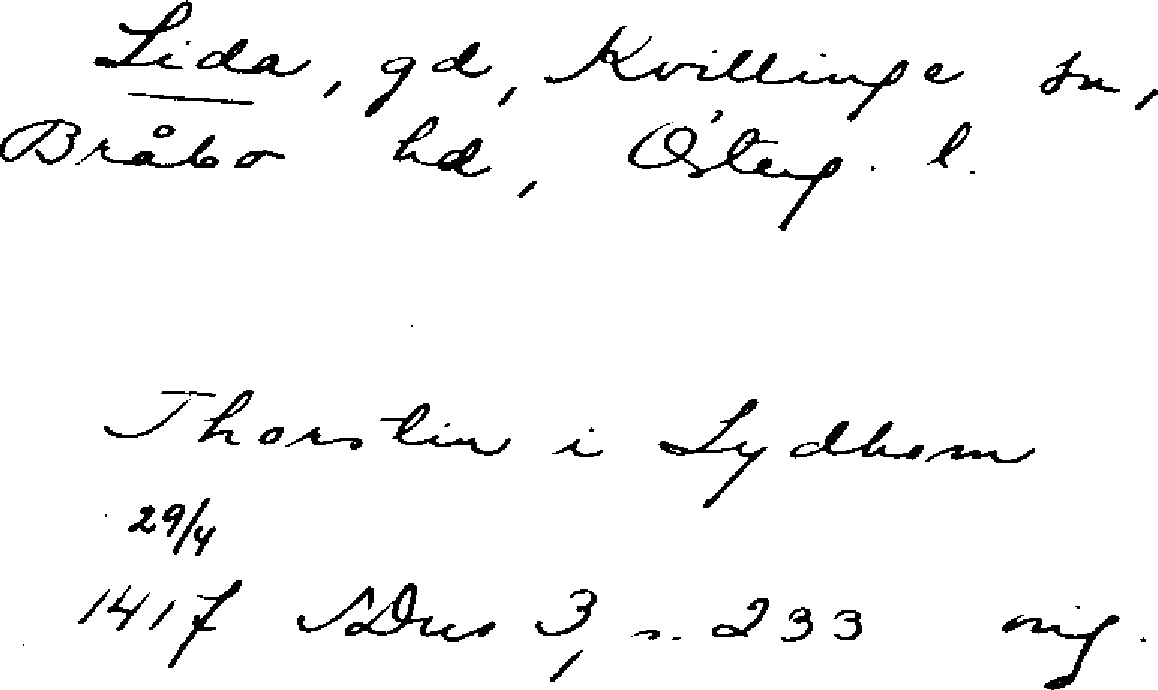 Lida, gd, Kvillinge sn,
Bråbo hd, Österg. l.
Thorstin i Lydhom
29/4
1417 SDns 3, s. 233 orig.